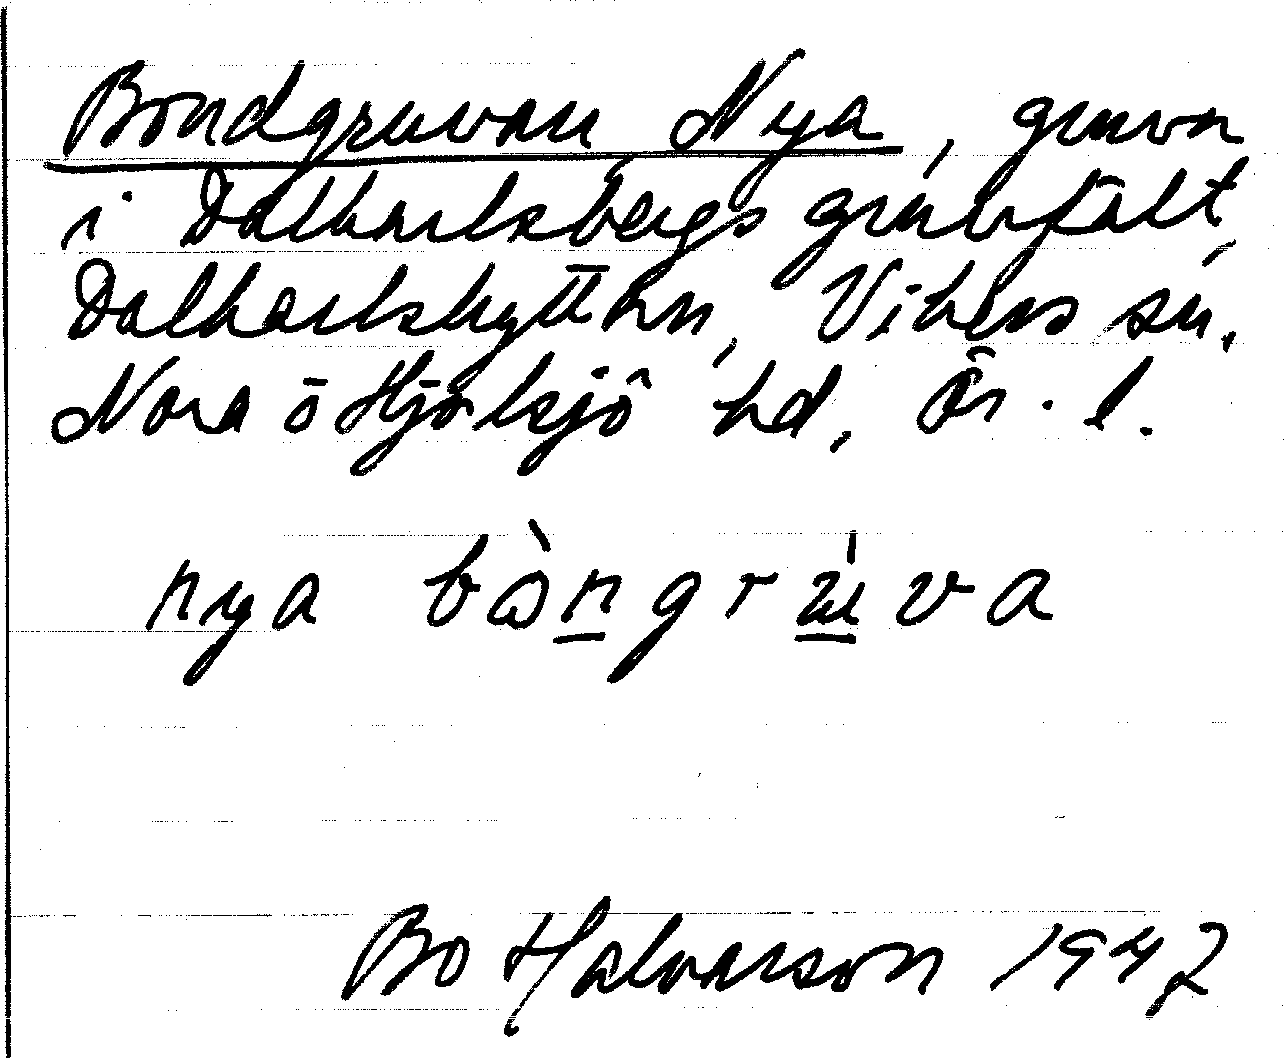 Bondgruvan, Nya, gruva
i Dalkarlsbergs gruvfält,
Dalkarlshyttan, Vikers sn,
Nora o Hjulsjö hd, Ör. l.
nya bòngrúva
Bo Halvarson 1947